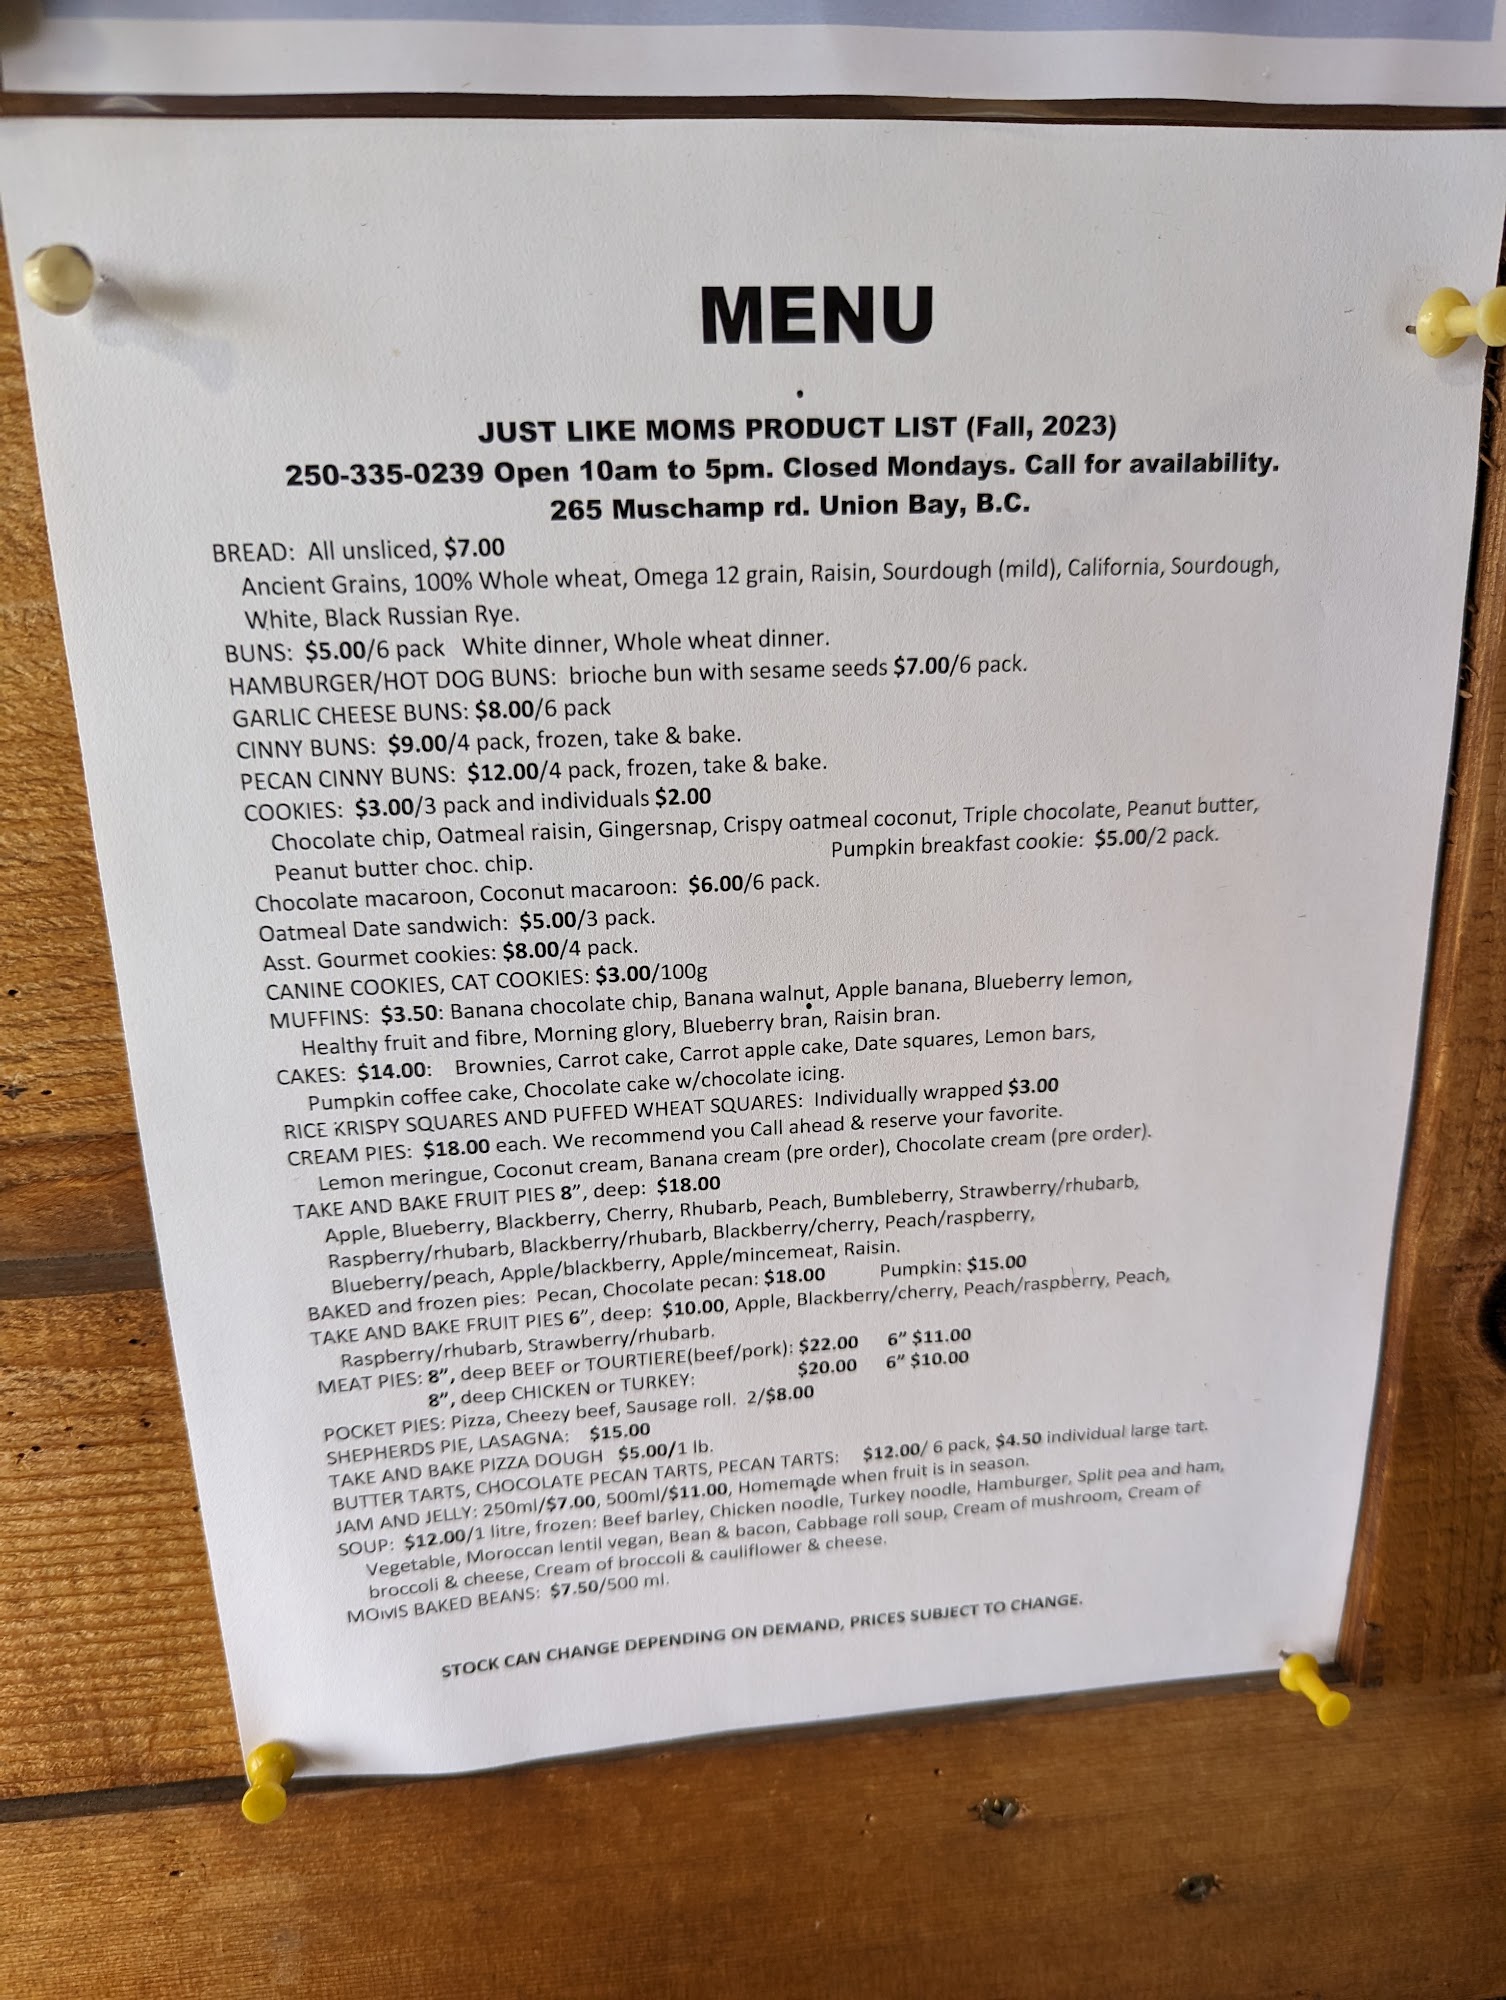 MENU
JUST LIKE MOMS PRODUCT LIST (Fall, 2023)
250-335-0239 Open 10am to 5pm. Closed Mondays. Call for availability.
265 Muschamp rd. Union Bay, B.C.
BREAD: All unsliced, $7.00
Ancient Grains, 100% Whole wheat, Omega 12 grain, Raisin, Sourdough (mild), California, Sourdough,
White, Black Russian Rye.
BUNS: $5.00/6 pack White dinner, Whole wheat dinner.
HAMBURGER/HOT DOG BUNS: brioche bun with sesame seeds $7.00/6 pack.
GARLIC CHEESE BUNS: $8.00/6 pack
CINNY BUNS: $9.00/4 pack, frozen, take & bake.
PECAN CINNY BUNS: $12.00/4 pack, frozen, take & bake.
COOKIES: $3.00/3 pack and individuals $2.00
Chocolate chip, Oatmeal raisin, Gingersnap, Crispy oatmeal coconut, Triple chocolate, Peanut butter,
Peanut butter choc. chip. Pumpkin breakfast cookie: $5.00/2 pack.
Chocolate macaroon, Coconut macaroon: $6.00/6 pack.
Oatmeal Date sandwich: $5.00/3 pack.
Asst. Gourmet cookies: $8.00/4 pack.
CANINE COOKIES, CAT COOKIES: $3.00/100g
MUFFINS: $3.50: Banana chocolate chip, Banana walnut, Apple banana, Blueberry lemon,
Healthy fruit and fibre, Morning glory, Blueberry bran, Raisin bran.
CAKES: $14.00: Brownies, Carrot cake, Carrot apple cake, Date squares, Lemon bars,
Pumpkin coffee cake, Chocolate cake w/chocolate icing.
RICE KRISPY SQUARES AND PUFFED WHEAT SQUARES: Individually wrapped $3.00
CREAM PIES: $18.00 each. We recommend you Call ahead & reserve your favorite.
Lemon meringue, Coconut cream, Banana cream (pre order), Chocolate cream (pre order).
TAKE AND BAKE FRUIT PIES 8”, deep: $18.00
Apple, Blueberry, Blackberry, Cherry, Rhubarb, Peach, Bumbleberry, Strawberry/rhubarb,
Raspberry/rhubarb, Blackberry/rhubarb, Blackberry/cherry, Peach/raspberry,
Blueberry/peach, Apple/blackberry, Apple/mincemeat, Raisin.
BAKED and frozen pies: Pecan, Chocolate pecan: $18.00 Pumpkin: $15.00
TAKE AND BAKE FRUIT PIES 6”, deep: $10.00, Apple, Blackberry/cherry, Peach/raspberry, Peach,
Raspberry/rhubarb, Strawberry/rhubarb.
MEAT PIES: 8”, deep BEEF or TOURTIERE(beef/pork): $22.00 6” $11.00
8”, deep CHICKEN or TURKEY: $20.00 6” $10.00
POCKET PIES: Pizza, Cheezy beef, Sausage roll. 2/$8.00
SHEPHERDS PIE, LASAGNA: $15.00
TAKE AND BAKE PIZZA DOUGH $5.00/1 lb.
BUTTER TARTS, CHOCOLATE PECAN TARTS, PECAN TARTS: $12.00/ 6 pack, $4.50 individual large tart.
JAM AND JELLY: 250ml/$7.00, 500ml/$11.00, Homemade when fruit is in season.
SOUP: $12.00/1 litre, frozen: Beef barley, Chicken noodle, Turkey noodle, Hamburger, Split pea and ham,
Vegetable, Moroccan lentil vegan, Bean & bacon, Cabbage roll soup, Cream of mushroom, Cream of
broccoli & cheese, Cream of broccoli & cauliflower & cheese.
MOMS BAKED BEANS: $7.50/500 ml.
STOCK CAN CHANGE DEPENDING ON DEMAND, PRICES SUBJECT TO CHANGE.